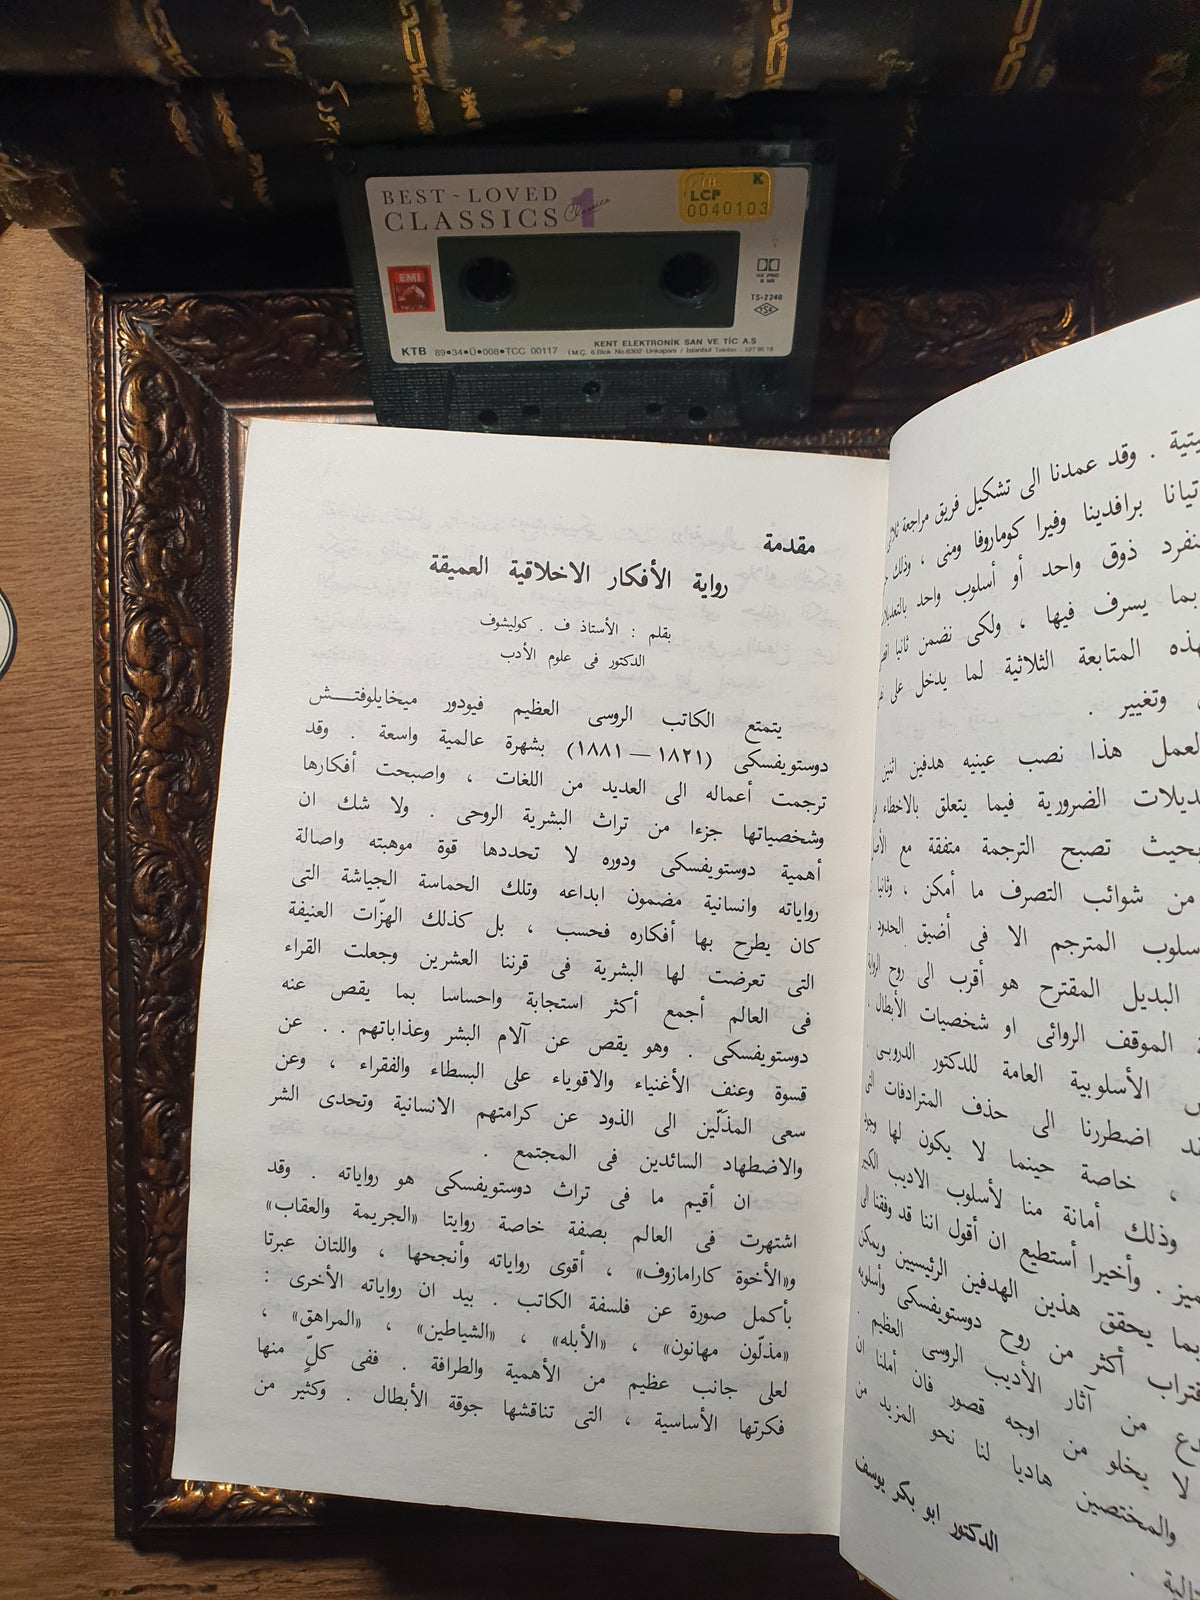 BEST-LOVED
CLASSICS 1
Classics
KTB K
LCP
0040103
EMI
TS-2240
TSE
KENT ELEKTRONİK SAN VE TİC A.Ş
KTB 89•34•Ü•008•TCC 00117 İ.M.Ç. 6.Blok No:6302 Unkapanı / İstanbul Telefon : 527 95 19
وقد عمدنا الى تشكيل فريق مراجعة
برافدينا وفيرا كوماروفا ومنى ، وذلك
ذوق واحد أو أسلوب واحد
بما يسرف فيها ، ولكى نضمن ثانيا
المتابعة الثلاثية لما يدخل على
وتغيير .
هذا نصب عينيه هدفين اثنين
الضرورية فيما يتعلق بالاخطاء
بحيث تصبح الترجمة متفقة مع
من شوائب التصرف ما أمكن ، وثانيا
المترجم الا فى أضيق الحدود
البديل المقترح هو أقرب الى روح
الموقف الروائى او شخصيات الأبطال
الأسلوبية العامة للدكتور الدروبى
اضطررنا الى حذف المترادفات
، خاصة حينما لا يكون لها
وذلك أمانة منا لأسلوب الاديب
. وأخيرا أستطيع ان أقول اننا قد وفقنا
بما يحقق هذين الهدفين الرئيسيين ويمكن
أكثر من روح دوستويفسكى وأسلوبه
من آثار الأديب الروسى العظيم .
لا يخلو من اوجه قصور فان أملنا ان
والمختصين هاديا لنا نحو المزيد من
الدكتور ابو بكر يوسف
مقدمة
رواية الأفكار الاخلاقية العميقة
بقلم : الأستاذ ف . كوليشوف
الدكتور فى علوم الأدب
يتمتع الكاتب الروسى العظيم فيودور ميخايلوفتش
دوستويفسكى (١٨٢١ — ١٨٨١) بشهرة عالمية واسعة . وقد
ترجمت أعماله الى العديد من اللغات ، واصبحت أفكارها
وشخصياتها جزءا من تراث البشرية الروحى . ولا شك ان
أهمية دوستويفسكى ودوره لا تحددها قوة موهبته واصالة
رواياته وانسانية مضمون ابداعه وتلك الحماسة الجياشة التى
كان يطرح بها أفكاره فحسب ، بل كذلك الهزّات العنيفة
التى تعرضت لها البشرية فى قرننا العشرين وجعلت القراء
فى العالم أجمع أكثر استجابة واحساسا بما يقص عنه
دوستويفسكى . وهو يقص عن آلام البشر وعذاباتهم . . عن
قسوة وعنف الأغنياء والاقوياء على البسطاء والفقراء ، وعن
سعى المذَلّين الى الذود عن كرامتهم الانسانية وتحدى الشر
والاضطهاد السائدين فى المجتمع .
ان أقيم ما فى تراث دوستويفسكى هو رواياته . وقد
اشتهرت فى العالم بصفة خاصة روايتا «الجريمة والعقاب»
و«الأخوة كارامازوف» ، أقوى رواياته وأنجحها ، واللتان عبرتا
بأكمل صورة عن فلسفة الكاتب . بيد ان رواياته الأخرى :
«مذلّون مهانون» ، «الأبله» ، «الشياطين» ، «المراهق» ،
لعلى جانب عظيم من الأهمية والطرافة . ففى كلٍّ منها
فكرتها الأساسية ، التى تناقشها جوقة الأبطال . وكثير من